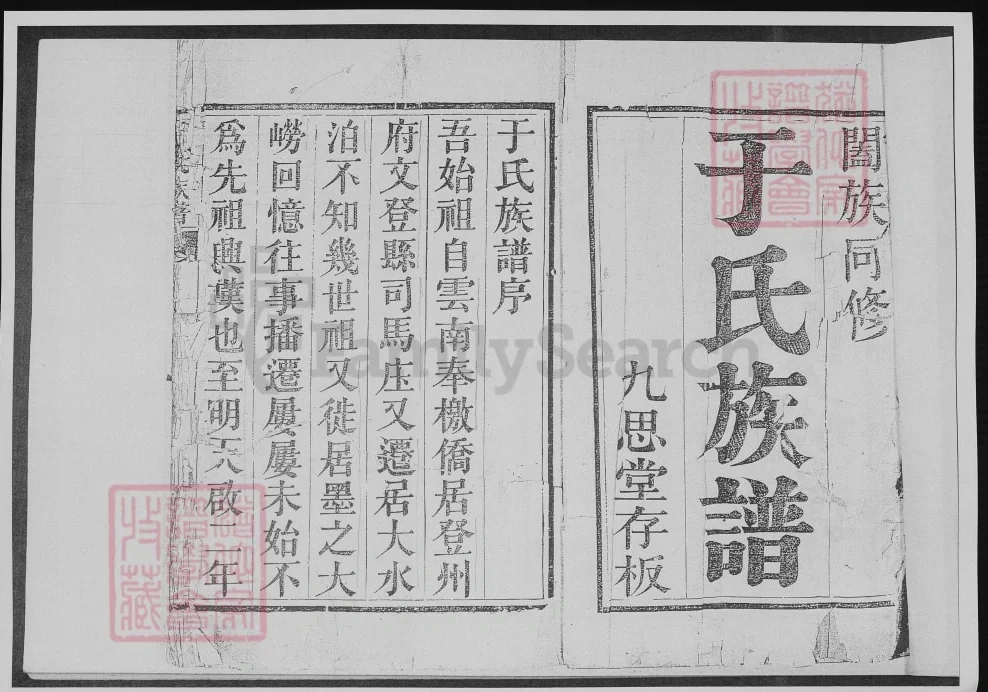 闔族同修
于氏族譜
九思堂存板
于氏族譜序
吾始祖自雲南奉檄僑居登州
府文登縣司馬庄又遷居大水
泊不知幾世祖又徙居墨之大
嶗回憶往事播遷屢屢未始不
為先祖興嘆也至明天啟二年
氏族譜
FamilySearch